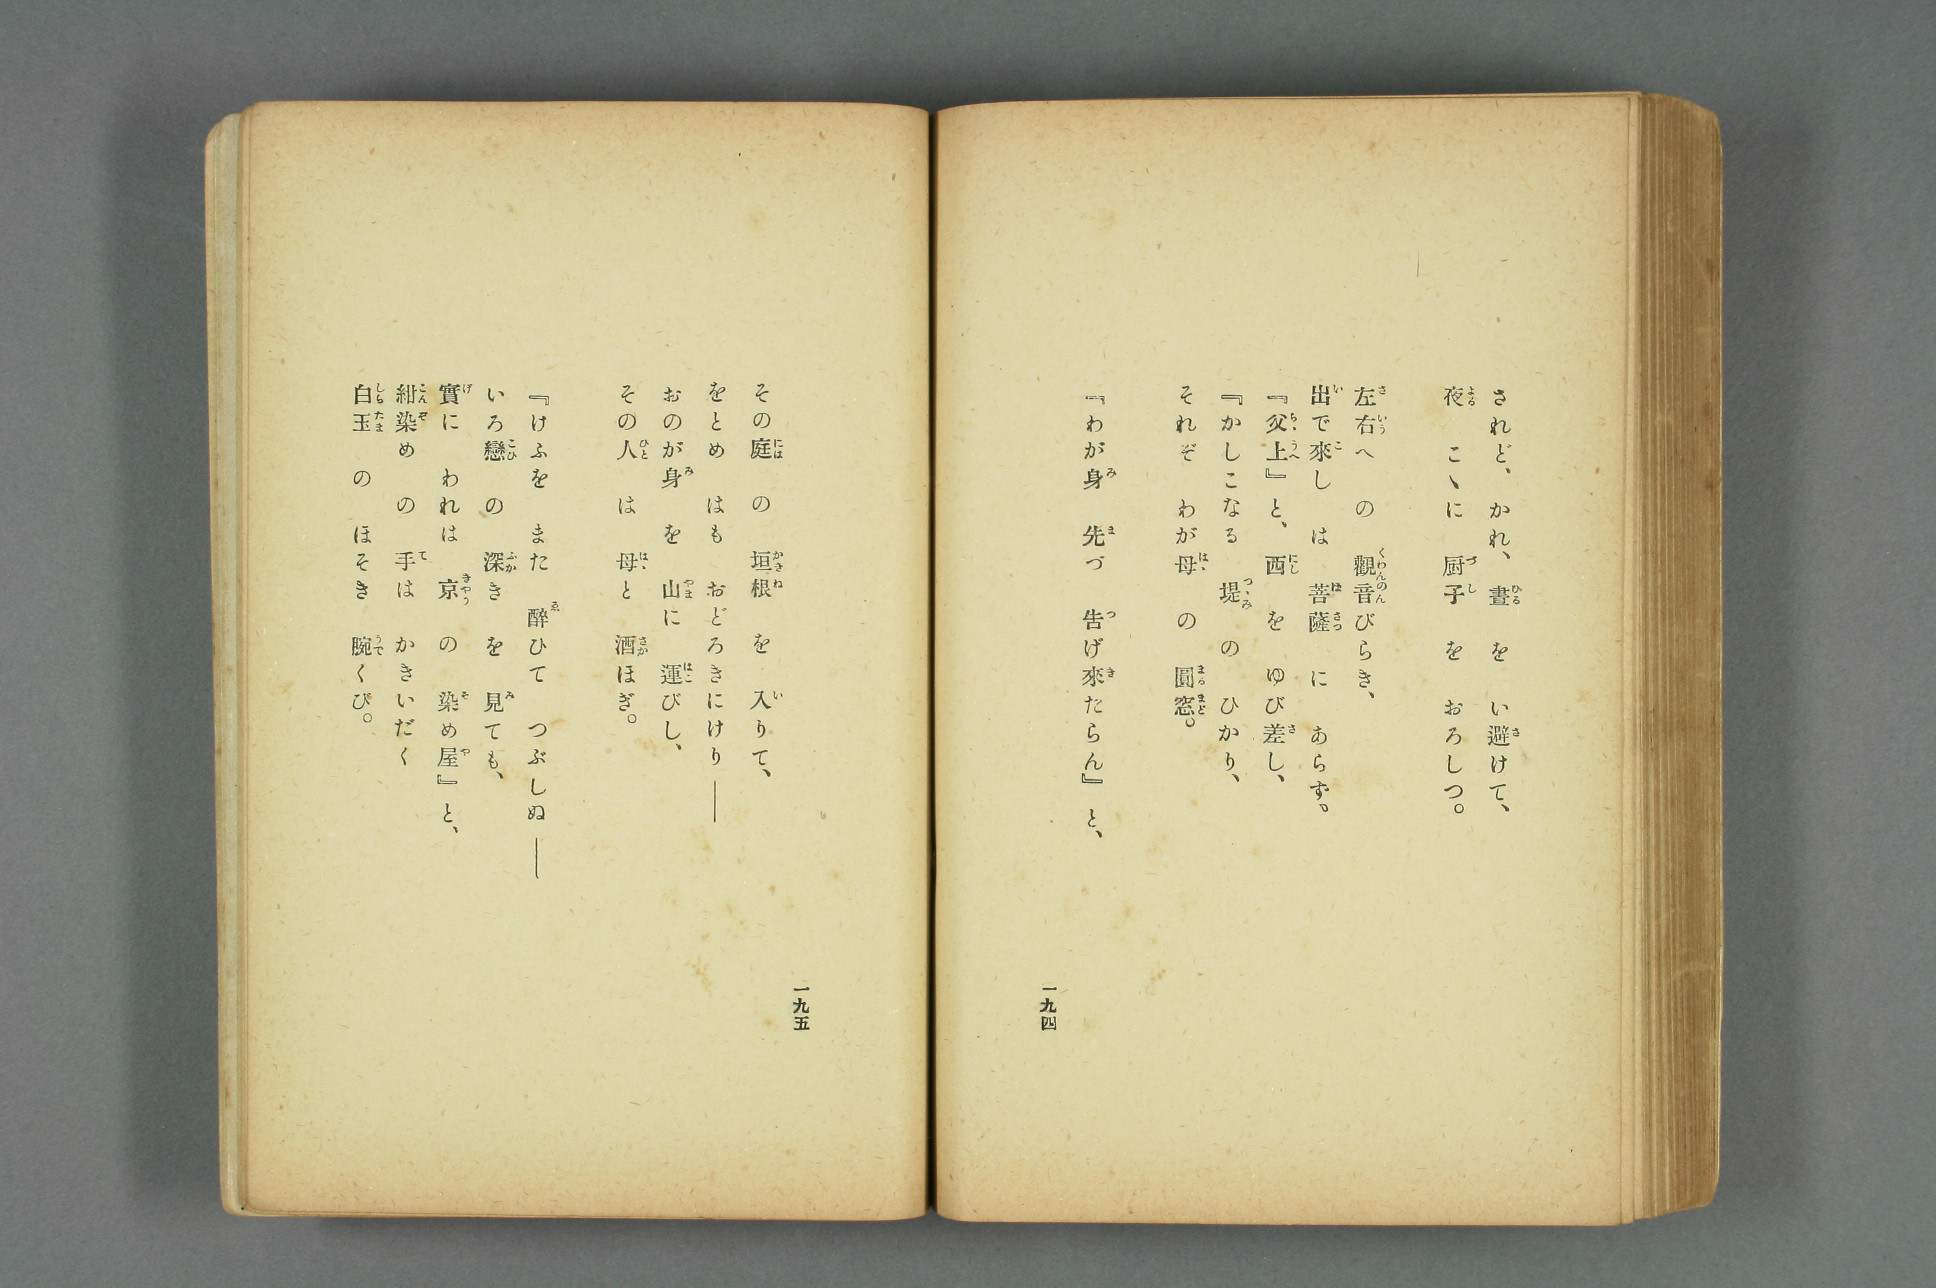 されど、かれ、晝 を い避けて、
夜 こゝに 厨子 を おろしつ。
左右へ の 觀音びらき、
出で來し は 菩薩 に あらず。
『父上』と、 西 を ゆび差し、
『かしこなる 堤 の ひかり、
それぞ わが母 の 圓窓。
『わが身 先づ 告げ來たらん』と、
一九四
その庭 の 垣根 を 入りて、
をとめ はも おどろきにけり――
おのが身 を 山に 運びし、
その人 は 母と 酒ほぎ。
『けふを また 醉ひて つぶしぬ――
いろ戀 の 深き を 見ても、
實に われは 京 の 染め屋』と、
紺染め の 手は かきいだく
白玉 の ほそき 腕くび。
一九五